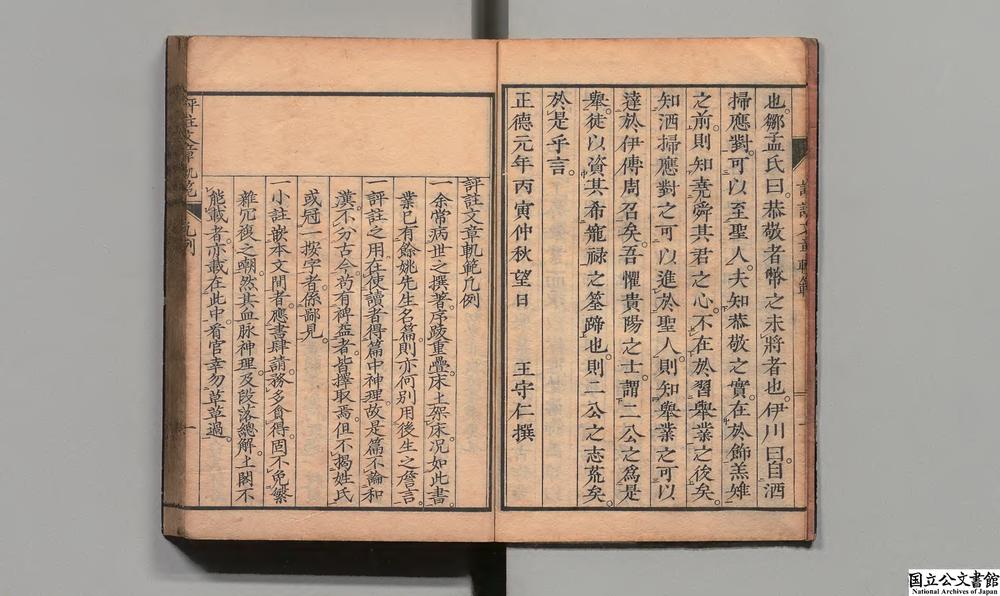 也鄒孟氏曰恭敬者幣之未將者也伊川曰自洒
掃應對可以至聖人夫知恭敬之實在於飾羔雉
之前則知堯舜其君之心不在於習舉業之後矣
知洒掃應對之可以進於聖人則知舉業之可以
達於伊傅周召矣吾懼貴陽之士謂二公之爲是
舉徒以資其希寵祿之筌蹄也則二公之志荒矣
於是乎言
正德元年丙寅仲秋望日 王守仁撰
評註文章軌範凡例
一余常病世之撰著序跋重疊床上架床况如此書
業已有餘姚先生名篇則亦何別用後生之詹言
一評註之用在使讀者得篇中神理故是篇不論和
漢不分古今苟有裨益者皆擇取焉但不揭姓氏
或冠一按字者係鄙見
一小註嵌本文間者應書肆請務多貪得固不免繁
雜冗複之嘲然其血脉神理及段落總解上闕不
能載者亦載在此中看官幸勿草草過
評註文章軌範 凡例 一
国立公文書館
National Archives of Japan